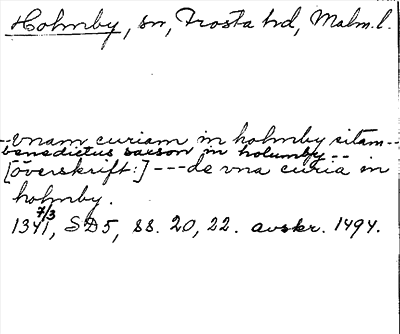 Holmby, sn, Frosta hd, Malm.l.
--vnam curiam in holmby sitam--
benedictus saxson in holumby--
[överskrift:] ---de vna curia in
holmby.
1341 7/3, SD5, ss. 20, 22. avskr. 1494.